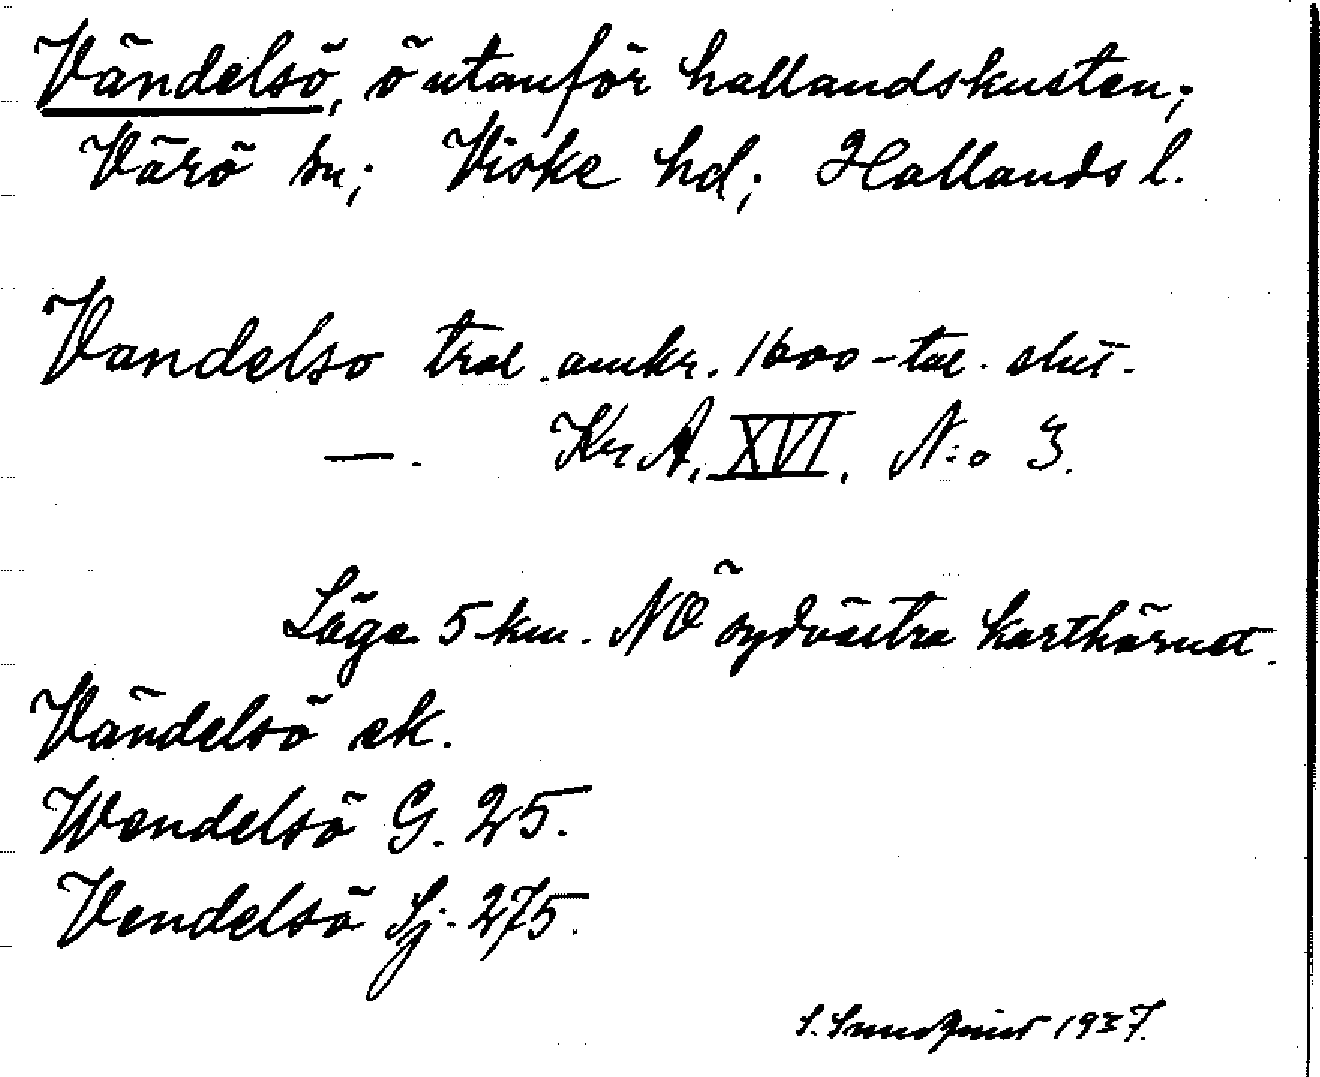 Vändelsö, ö utanför hallandskusten;
Värö sn; Viske hd; Hallands l.
Vandelso trol. omkr. 1600-tal. slut.
—. Kr A. XVI. N:o 3.
Läge 5 km. NÖ sydvästra karthörnet.
Vändelsö ek.
Wendelsö G. 25.
Vendelsö Sj. 275.
S. Sundquist 1937.